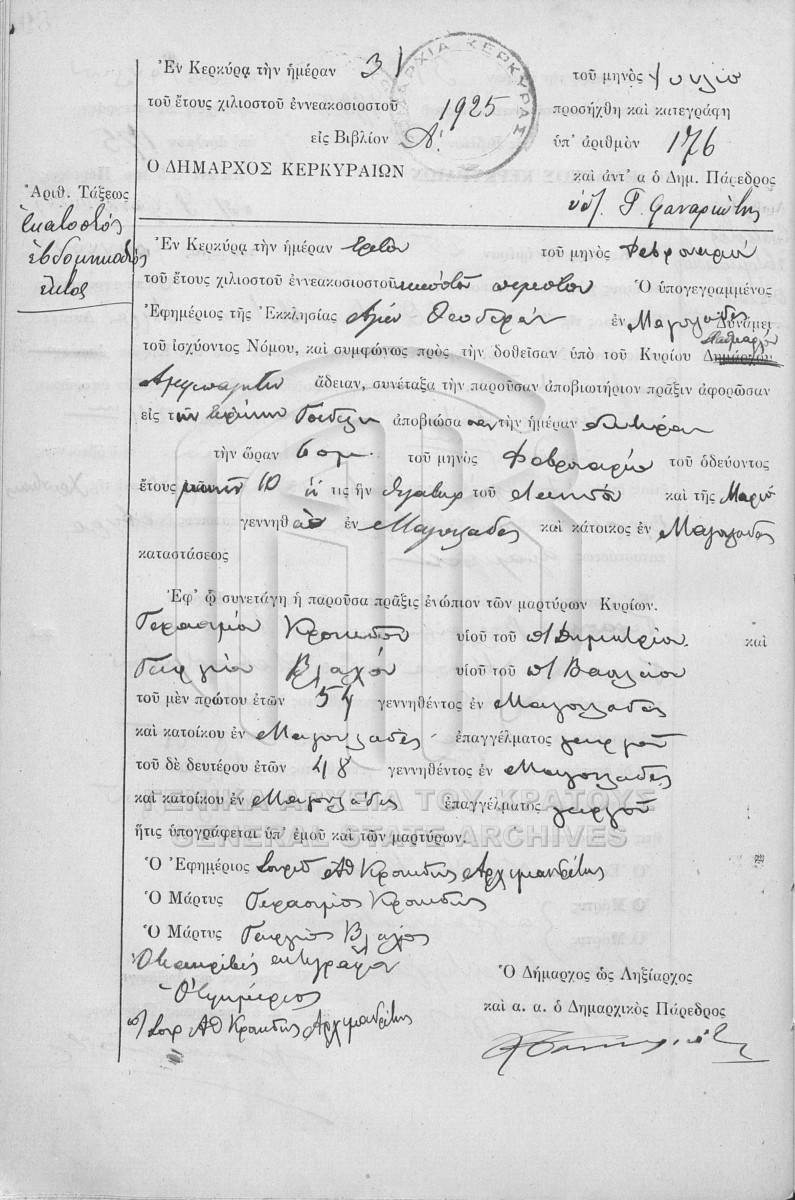 Ἐν Κερκύρᾳ τὴν ἡμέραν 31 τοῦ μηνὸς Ιουλίου
τοῦ ἔτους χιλιοστοῦ ἐννεακοσιοστοῦ 1925 προσήχθη καὶ κατεγράφη
εἰς Βιβλίον Α'. ὑπ' ἀριθμὸν 176
Ο ΔΗΜΑΡΧΟΣ ΚΕΡΚΥΡΑΙΩΝ καὶ ἀντ' α ὁ Δημ. Πάρεδρος
ΚΕΡΚΥΡΑΣ
Ἀριθ. Τάξεως
ἑκατοστός
ἑβδομηκοστός
ἕκτος
Ἐν Κερκύρᾳ τὴν ἡμέραν τρίτην τοῦ μηνὸς Φεβρουαρίου
τοῦ ἔτους χιλιοστοῦ ἐννεακοσιοστοῦ εικοστοῦ πέμπτου Ὁ ὑπογεγραμμένος
Ἐφημέριος τῆς Ἐκκλησίας Αγίων Θεοδώρων ἐν Μαγουλάδες Δυνάμει
τοῦ ἰσχύοντος Νόμου, καὶ συμφώνως πρὸς τὴν δοθεῖσαν ὑπὸ τοῦ Κυρίου Δημάρχου
ἄδειαν, συνέταξα τὴν παροῦσαν ἀποβιωτήριον πρᾶξιν ἀφορῶσαν
εἰς τὴν Ειρήνην ἀποβιώσασαν τὴν ἡμέραν Δευτέραν
τὴν ὥραν 6 π.μ. τοῦ μηνὸς Φεβρουαρίου τοῦ ὁδεύοντος
ἔτους ἥτις ἦν θυγάτηρ τοῦ καὶ τῆς
γεννηθ ἐν Μαγουλάδες καὶ κάτοικος ἐν Μαγουλάδες
καταστάσεως
Ἐφ' ᾧ συνετάγη ἡ παροῦσα πρᾶξις ἐνώπιον τῶν μαρτύρων Κυρίων.
Γερασίμου Κροκιδού υἱοῦ τοῦ π/ Δημητρίου καὶ
Γεωργίου Βλαχού υἱοῦ τοῦ π/ Βασιλείου
τοῦ μὲν πρώτου ἐτῶν 54 γεννηθέντος ἐν Μαγουλάδες
καὶ κατοίκου ἐν Μαγουλάδες ἐπαγγέλματος γεωργού
τοῦ δὲ δευτέρου ἐτῶν 48 γεννηθέντος ἐν Μαγουλάδες
καὶ κατοίκου ἐν Μαγουλάδες ἐπαγγέλματος γεωργού
ΓΕΝΙΚΑ ΑΡΧΕΙΑ ΤΟΥ ΚΡΑΤΟΥΣ
ἥτις ὑπογράφεται ὑπ' ἐμοῦ καὶ τῶν μαρτύρων.
GENERAL STATE ARCHIVES
Ὁ Ἐφημέριος Σπυρ Αθ Κροκιδης Αρχιμανδρίτης
Ὁ Μάρτυς Γεράσιμος Κροκιδης
Ὁ Μάρτυς Γεώργιος Βλαχος
Ότι ακριβές αντίγραφον
Ο Εφημέριος
π/ Σπυρ Αθ Κροκιδης Αρχιμανδρίτης
Ὁ Δήμαρχος ὡς Ληξίαρχος
καὶ α. α. ὁ Δημαρχικὸς Πάρεδρος